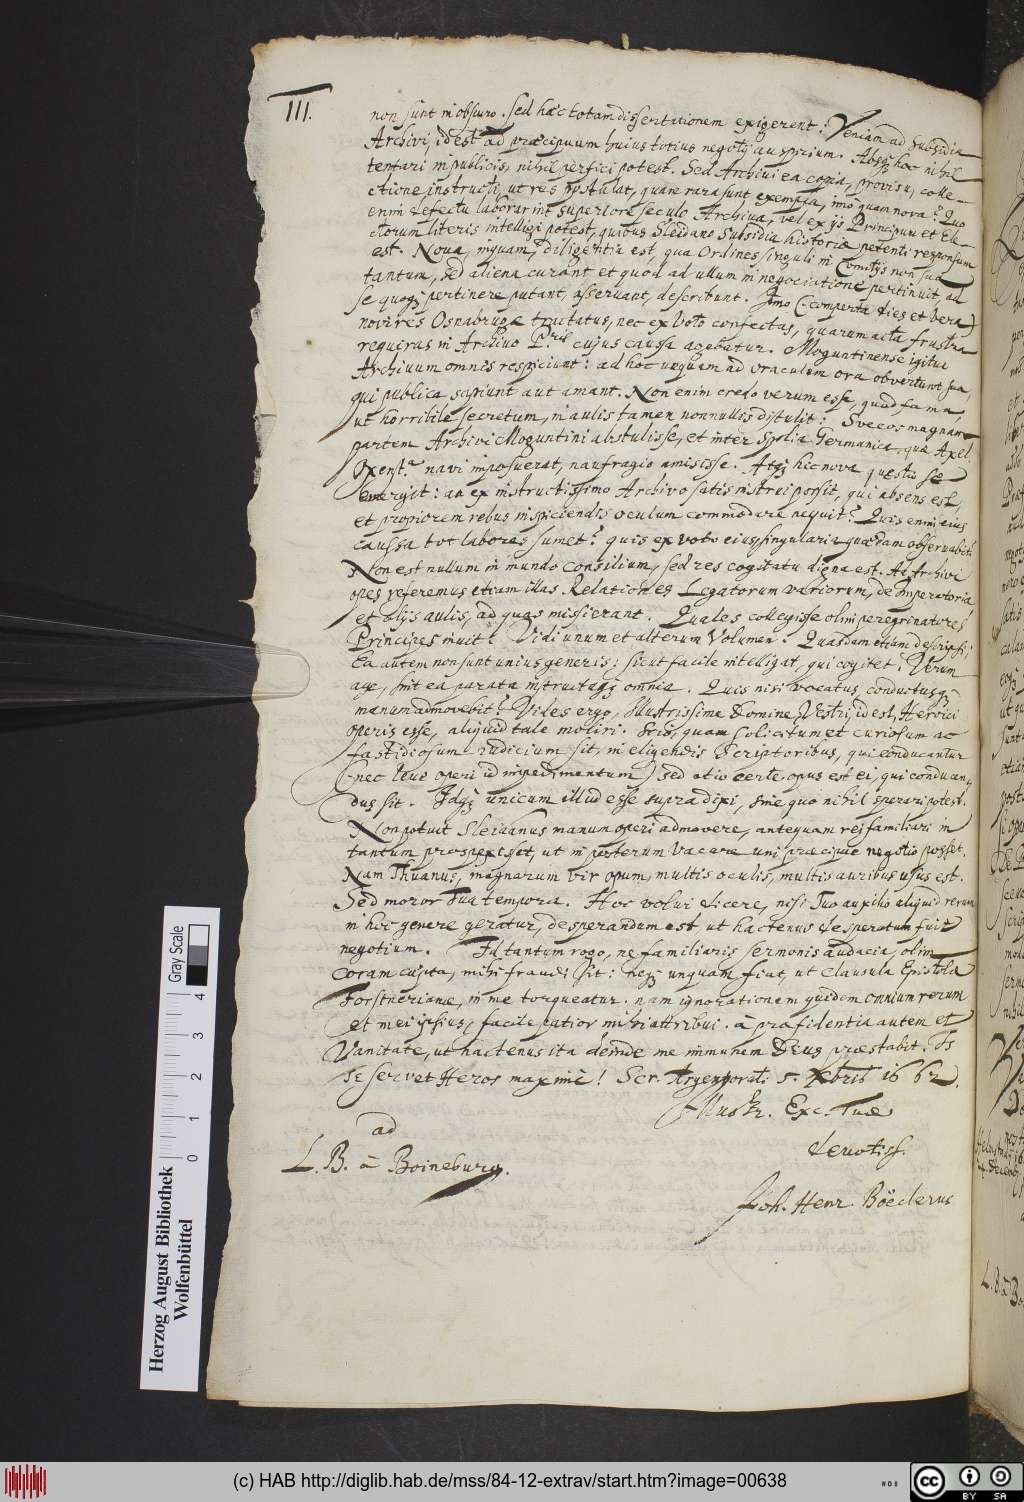 III.
non sunt in obscuro. sed haec totam dissertationem exigerent. Veniam ad subsidia
Archivi, id est ad praecipuum huius totius negotij auspicium. Absq; hoc nihil
tentari in publicis, nihil perfici potest. Sed Archivi ea copia, provisu, colle-
ctione instructi, ut res postulat, quam rara sunt exempla, imo quam nova? Quo
enim defectu laborarint superiore seculo Archiva, vel ex ijs Principum et Ele-
ctorum literis intelligi potest, quibus Sleidano subsidia historiae petenti responsum
est. Nova, inquam, diligentia est, qua Ordines singuli in Comitijs non sua
tantum, sed aliena curant et quod ad ullum in negociatione pertinuit, ad
se quoq; pertinere putant, asservant, describunt. Imo (comperta dies et vera)
novi res Osnabrugae tractatas, nec ex voto confectas, quarum acta frustra
requiras in Archivo P.ris cujus causa agebatur. Moguntinense igitur
Archivum omnes respiciunt: ad hoc unquam ad oraculum ora obvertunt sua,
qui publica sapiunt aut amant. Non enim credo verum esse, quod fama,
ut horribile secretum, in aulis tamen nonnullis distulit: Svecos magnam
partem Archivi Moguntini abstulisse, et inter spolia Germanica, quae Axel
Oxenst.a navi imposuerat, naufragio amisisse. Atq; hic nova quaestio se
emergit: an ex instructissimo Archivo satis instrui possit, qui absens est,
et propiorem rebus inspiciendis oculum commodare nequit? Quis enim eius
caussa tot labores sumet? quis ex voto eius singularia quaedam observabit?
Non est nullum in mundo consilium, sed res cogitatu digna est. Ad Archivi
opes referemus etiam illas Relationes Legatorum variorum, de Imperatoria
et alijs aulis, ad quas missi erant. Quales collegisse olim peregrinatores
Principes invitt. Vidi unum et alterum Volumen. Quaedam etiam descripsi;
Ea autem non sunt unius generis; sicut facile intelligat, qui cogitet. Verum
age, sint ea parata instructaq; omnia. Quis nisi vocatus, conductusq;
manum admovebit? Vides ergo, Illustrissime Domine, Vestri, id est, Heroici
operis esse, aliquid tale moliri. Scio, quam solicitum et curiosum ac
fastidiosum iudicium sit, in eligendis Scriptoribus, qui conducantur
(nec leve operi id impedimentum) sed otio certe opus est ei, qui conducen-
dus sit. Idq; unicum illud esse supra dixi, sine quo nihil sperari potest.
Non potuit Sleidanus manum operi admovere, antequam rei familiari in
tantum prospexisset, ut in posterum vacare uni praecipue negotio posset.
Nam Thuanus, magnarum vir opum, multis oculis, multis auribus usus est.
Sed moror Tua tempora. Hoc volui dicere, nisi Tuo auxilio aliquid rerum
in hoc genere geratur, desperandum est, ut hactenus desperatum fuit
negotium. Id tantum rogo, ne familiaris sermonis audacia, olim
coram cupta, mihi fraudi sit: neq; unquam fiat, ut clausula Epistola
Forstnerianae, in me torqueatur. nam ignorationem quidem omnium rerum
et mei ipsius, facile patior mihi attribui. à praefidentia autem et
Vanitate, ut hactenus ita deinde me immunem Deus praestabit. Is
Te servet Heros maxime! Scr. Argentorati 5. Xbris 1662.
Illustr. Exc. Tuae
ad
devotiss.
L. B. à Boineburg.
Joh. Henr. Böcclerus
Herzog August Bibliothek
Wolfenbüttel
0 1 2 3 4
Gray Scale
(c) HAB http://diglib.hab.de/mss/84-12-extrav/start.htm?image=00638
cc BY SA